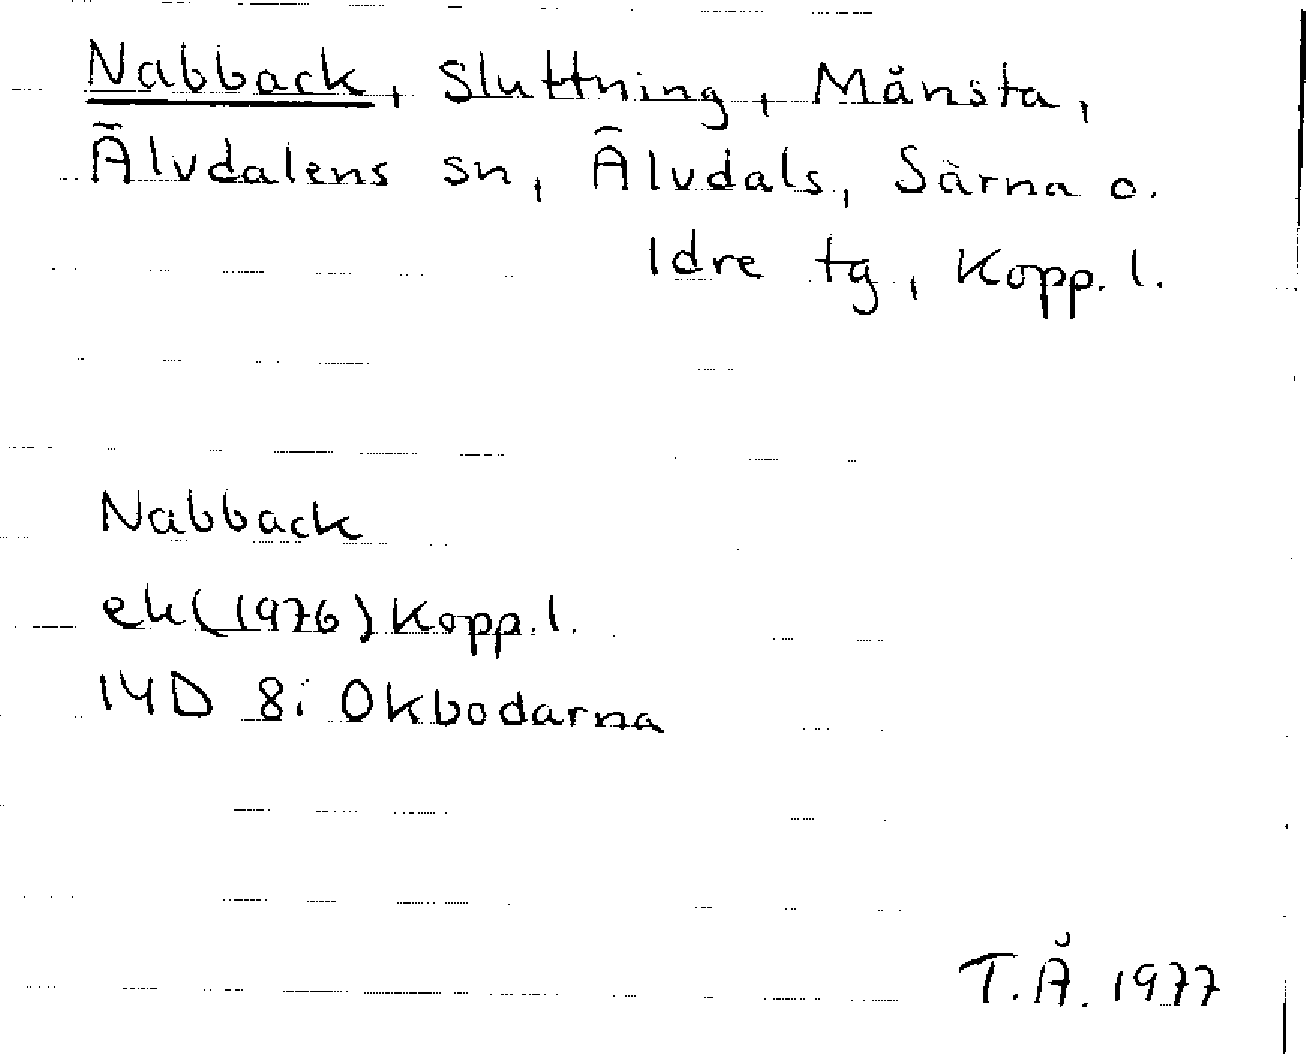 Nabback, Sluttning, Månsta,
Älvdalens sn, Älvdals, Särna o.
Idre tg, Kopp. l.
Nabback
ek (1976) Kopp. l.
14D 8i Okbodarna
T.Å. 1977